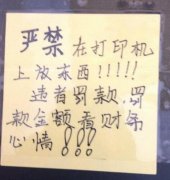 严禁在打印机
上放东西!!!!!
违者罚款,罚
款金额看财务
心情!!!